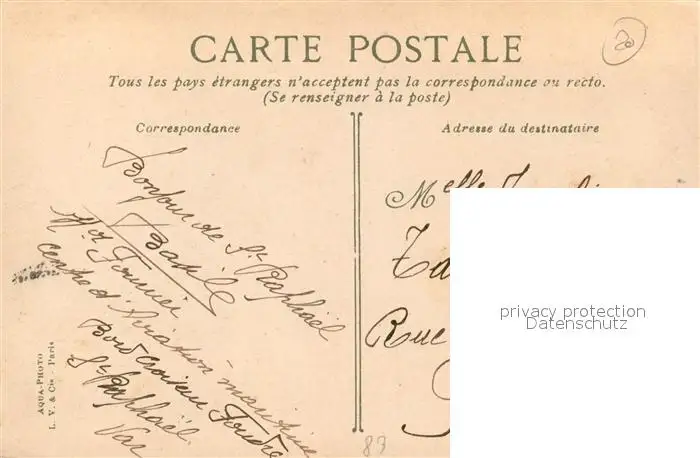 CARTE POSTALE
20
Tous les pays étrangers n'acceptent pas la correspondance au recto.
(Se renseigner à la poste)
Correspondance
Bonjour de St Raphaël
Basile
Fournier
centre d'Aviation maritime
Bord croiseur Foudre
St Raphaël
Var
AQUA-PHOTO
L. V. & Cie - Paris
Adresse du destinataire
Melle
Rue
privacy protection
Datenschutz
83